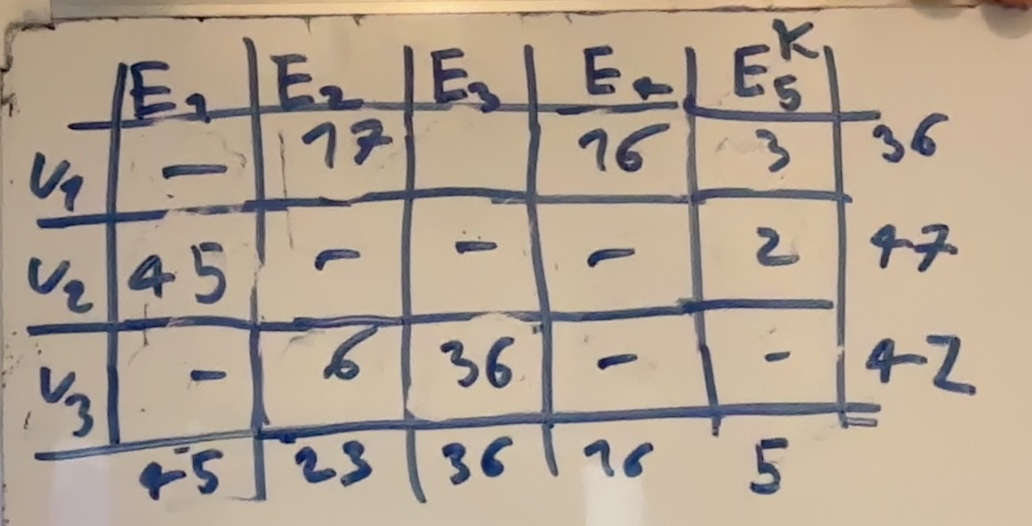 E₁ E₂ E₃ E₄ E₅ᴷ
V₁ - 17 16 3 36
V₂ 45 - - - 2 47
V₃ - 6 36 - - 42
45 23 36 16 5